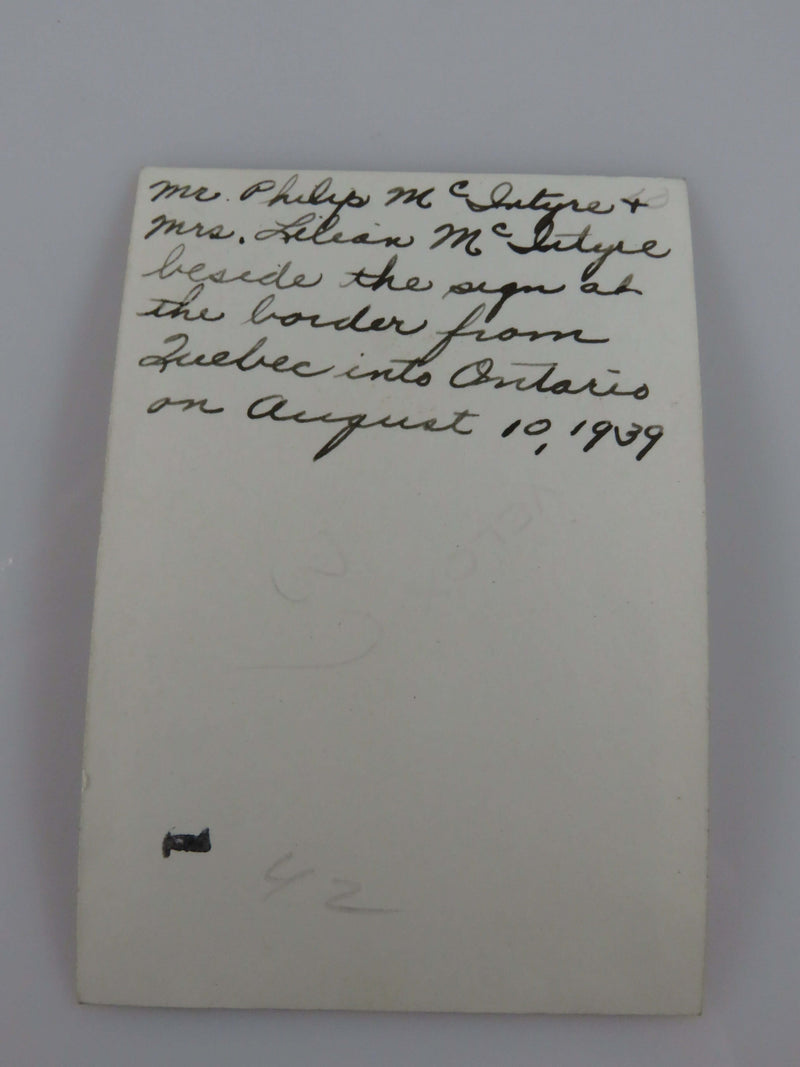 Mr. Philip McIntyre +
Mrs. Lilian McIntyre
beside the sign at
the border from
Quebec into Ontario
on August 10, 1939
42